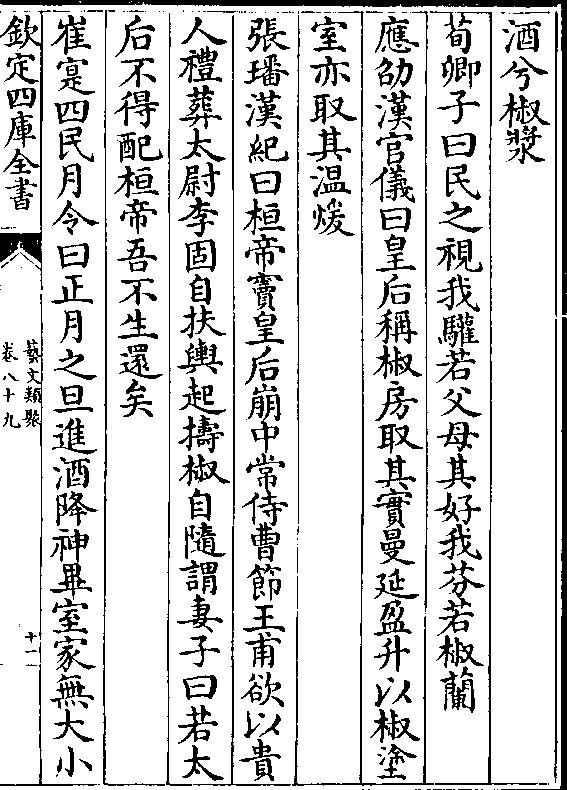 酒兮椒漿
荀卿子曰民之視我驩若父母其好我芬若椒蘭
應劭漢官儀曰皇后稱椒房取其實曼延盈升以椒塗
室亦取其温煖
張璠漢紀曰桓帝竇皇后崩中常侍曹節王甫欲以貴
人禮葬太尉李固自扶輿起擣椒自隨謂妻子曰若太
后不得配桓帝吾不生還矣
崔寔四民月令曰正月之旦進酒降神畢室家無大小
欽定四庫全書
藝文類聚
卷八十九
十二